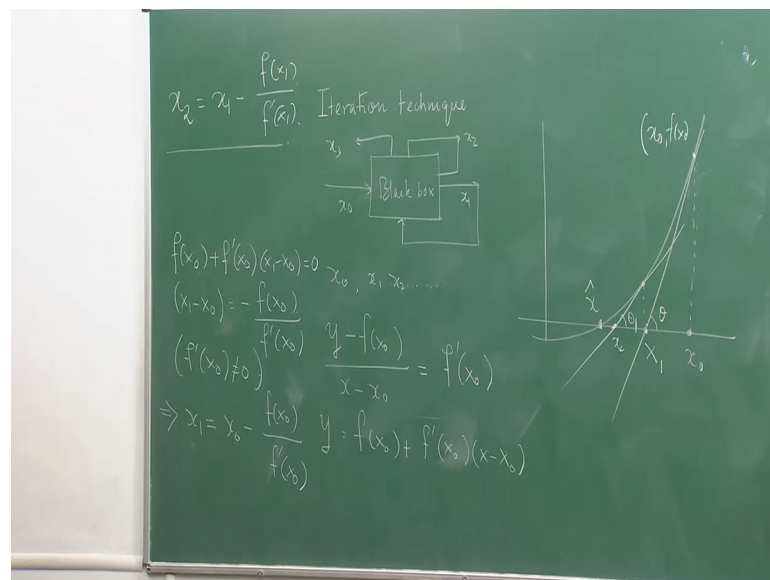 x₂ = x₁ - f(x₁) / f'(x₁). Iteration technique
x₃
x₂
Black box
x₀
x₁
f(x₀) + f'(x₀)(x₁-x₀) = 0
x₀, x₁ x₂ .......
(x₁-x₀) = - f(x₀) / f'(x₀)
(f'(x₀) ≠ 0)
(y - f(x₀)) / (x - x₀) = f'(x₀)
⇒ x₁ = x₀ - f(x₀) / f'(x₀)
y = f(x₀) + f'(x₀)(x-x₀)
(x₀, f(x₀)
x̂
θ₁
θ
x₂
x₁
x₀